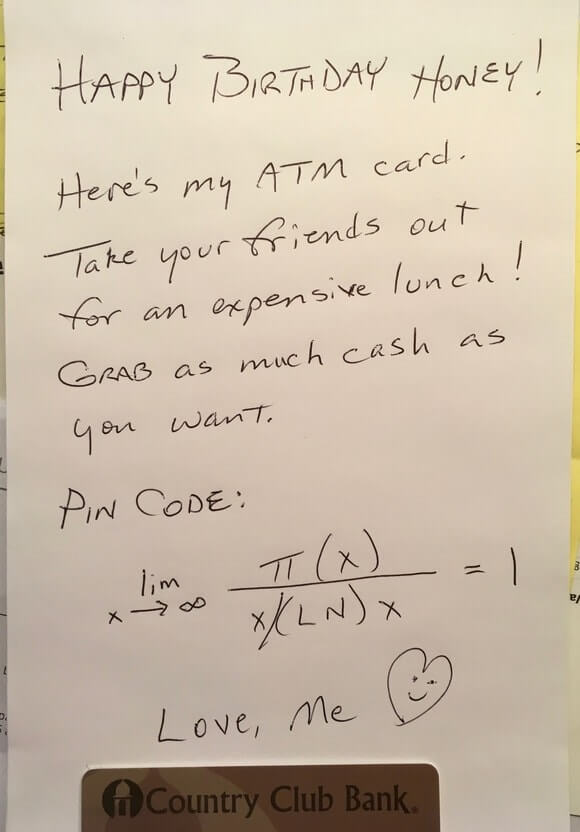 HAPPY BIRTHDAY HONEY!
Here's my ATM card.
Take your friends out
for an expensive lunch!
GRAB as much cash as
you want.
PIN CODE:
lim x→∞ π(x) / x/(LN)x = 1
Love, Me
Country Club Bank.